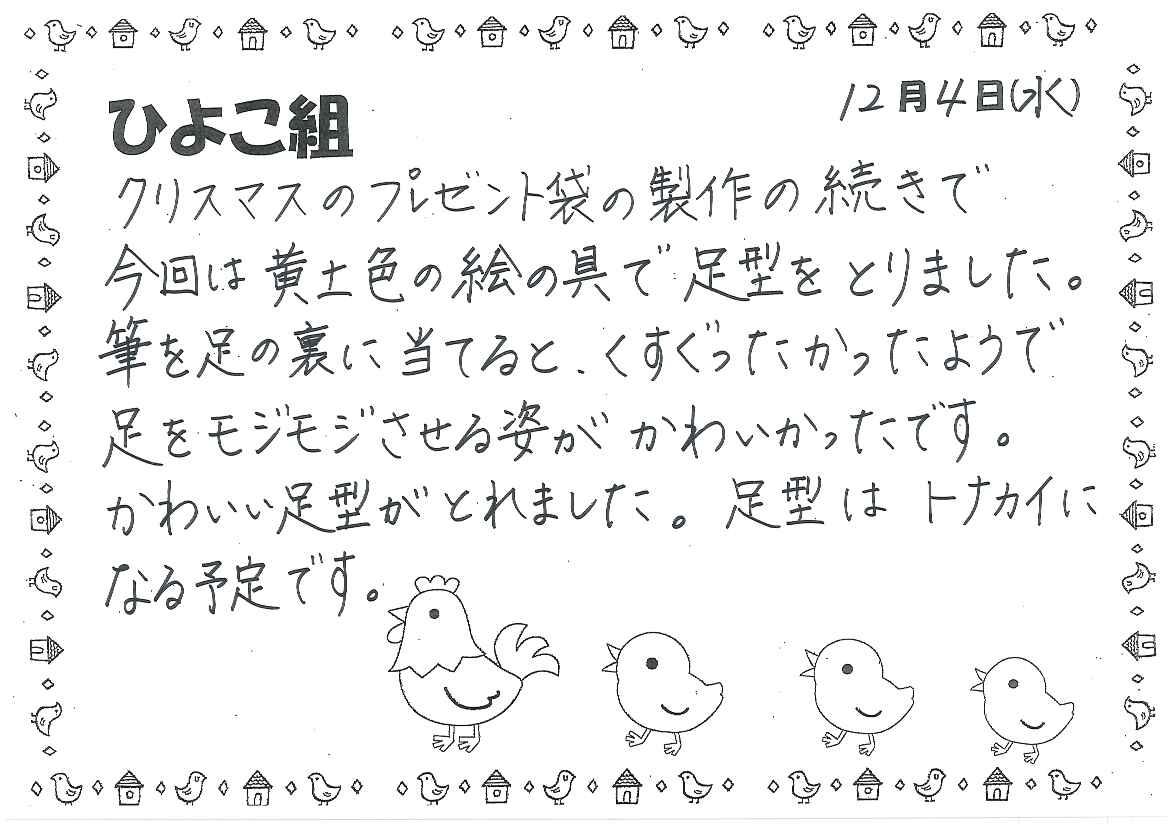 ひよこ組
12月4日(水)
クリスマスのプレゼント袋の製作の続きで
今回は黄土色の絵の具で足型をとりました。
筆を足の裏に当てると、くすぐったかったようで
足をモジモジさせる姿がかわいかったです。
かわいい足型がとれました。足型はトナカイに
なる予定です。